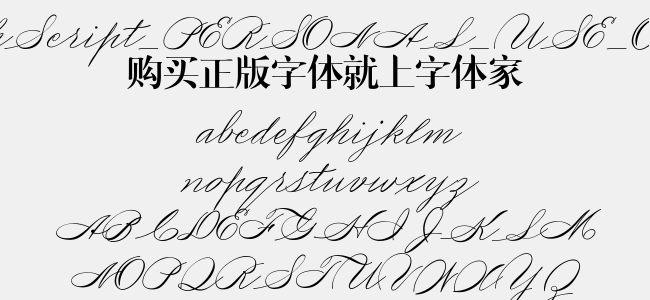 Script_PERSONAL_USE_O
购买正版字体就上字体家
abcdefghijklm
nopqrstuvwxyz
ABCDEFGHIJKLM
NOPQRSTUVWXYZ